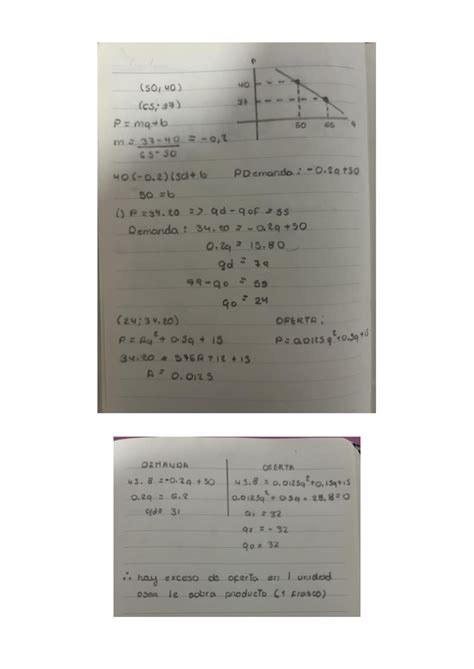 P
(50, 40)
40
(65, 37)
37
P = mq+b
50 65 q
m = 37-40 = -0,2
65-50
40(-0.2)(50)+b PDemanda: -0.2q+50
50 = b
i) P = 34.20 => qd - qof = 55
Demanda: 34.20 = -0.2q+50
0.2q = 15.80
qd = 79
79-q0 = 55
q0 = 24
(24; 34.20) OFERTA:
P = Aq²+0.5q+15 P = 0.0125q²+0.5q+15
34.20 = 576A+12+15
A = 0.0125
DEMANDA OFERTA
43.8 = -0.2q+50 43.8 = 0.0125q²+0,5q+15
0.2q = 6.2 0.0125q²+0.5q - 28.8 = 0
qd = 31 q1 = 32
q2 = -32
q0 = 32
∴ hay exceso de oferta en 1 unidad
osea le sobra producto (1 frasco)